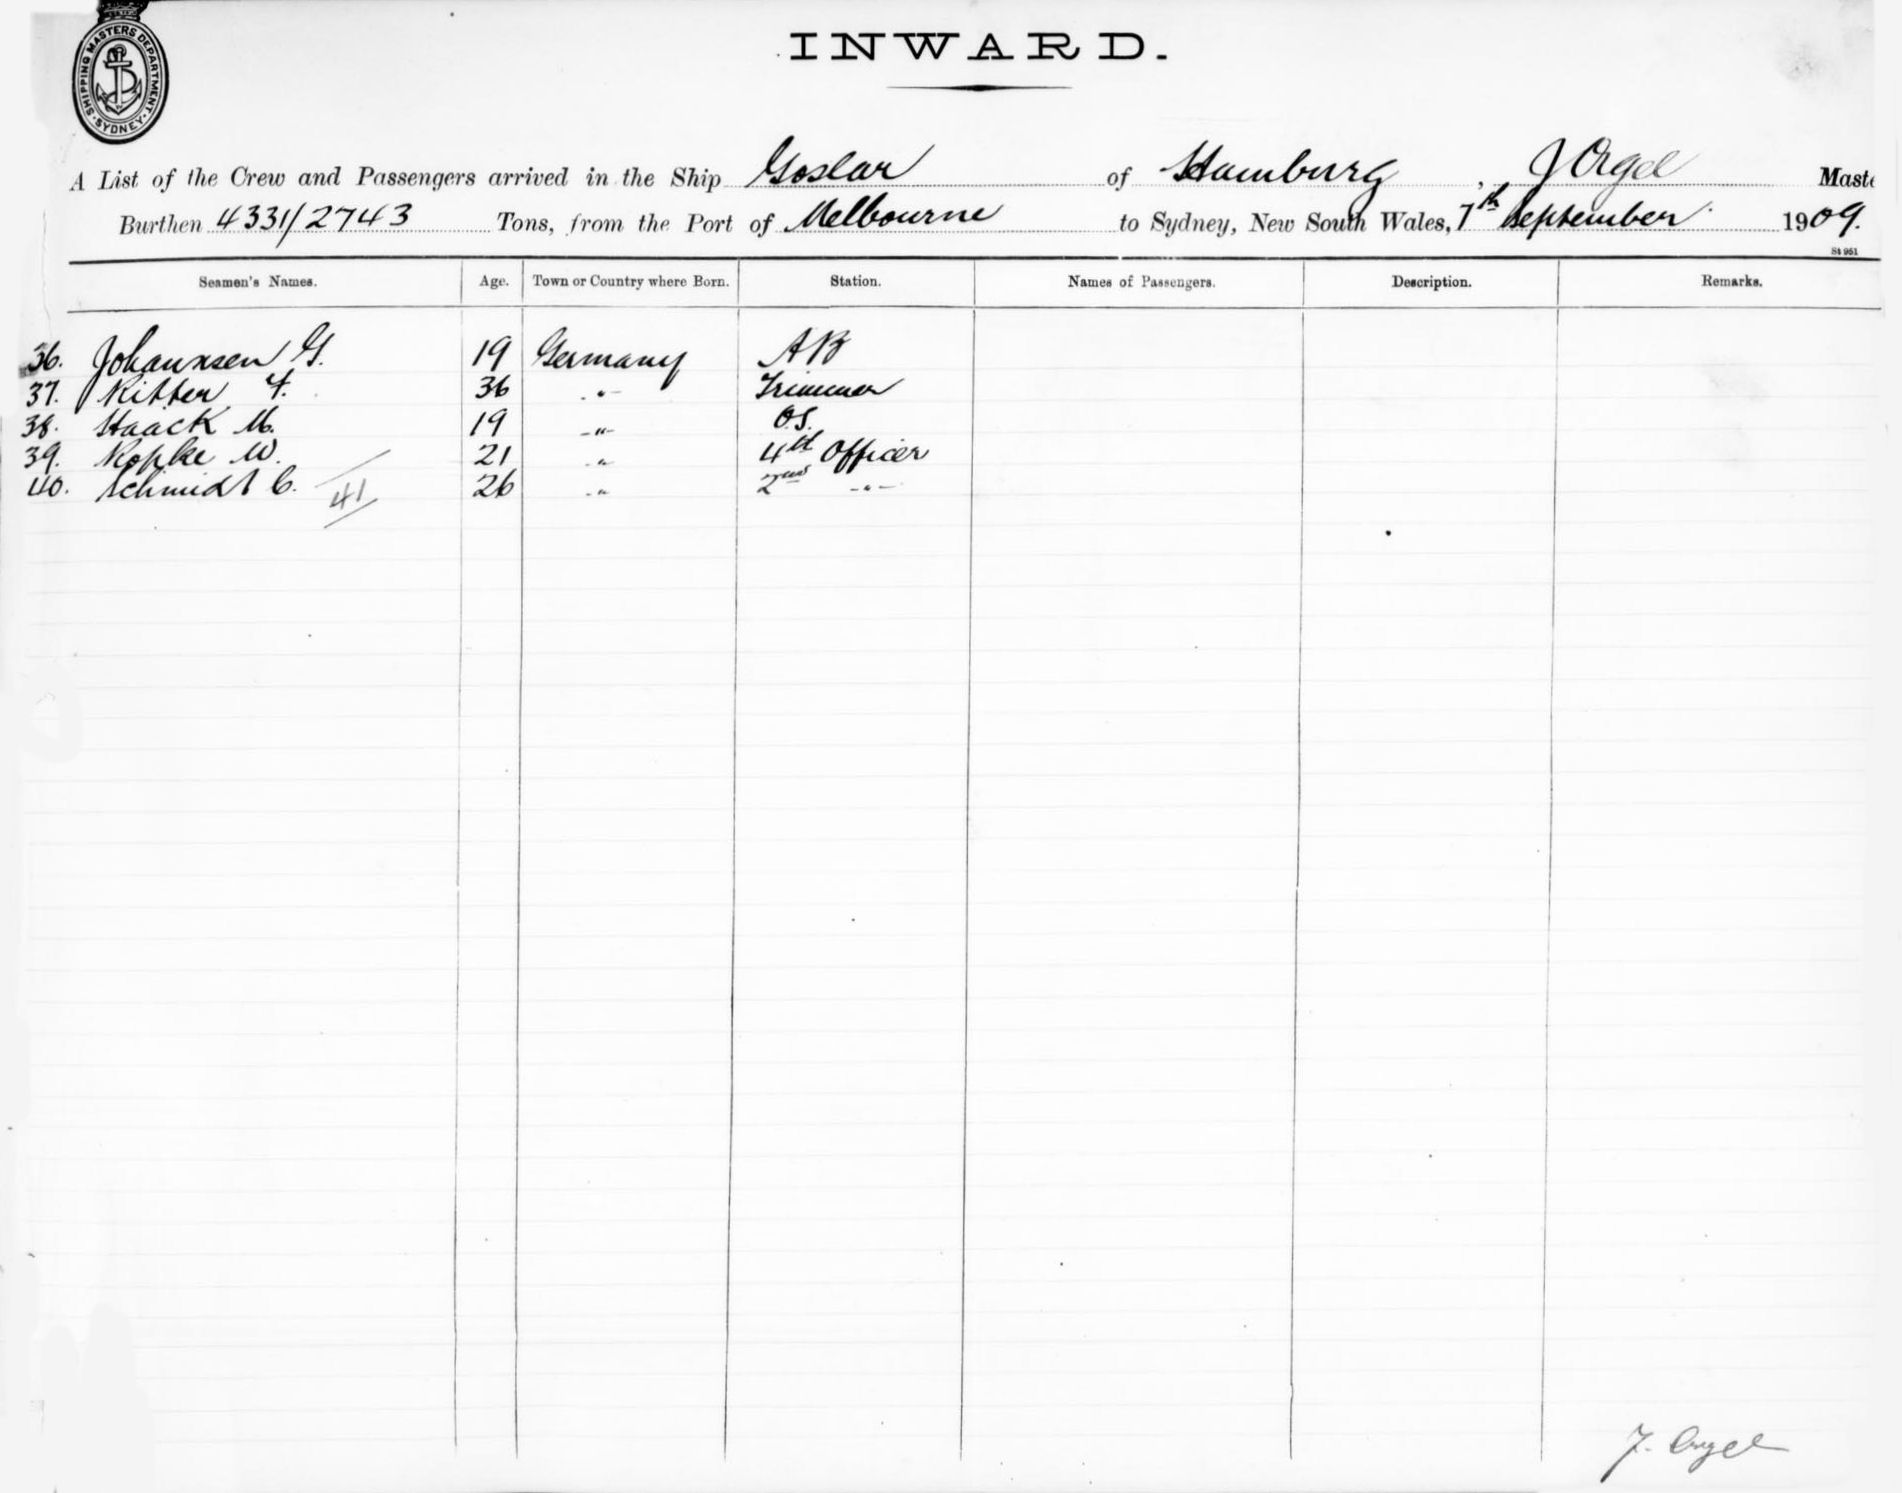 SHIPPING MASTERS DEPARTMENT. SYDNEY.
INWARD.
A List of the Crew and Passengers arrived in the Ship Goslar of Hamburg, J Orgel Maste
Burthen 4331/2743 Tons, from the Port of Melbourne to Sydney, New South Wales, 7th September 1909.
St 951
Seamen's Names. Age. Town or Country where Born. Station. Names of Passengers. Description. Remarks.
36. Johannsen G. 19 Germany AB
37. Ritter F. 36 -"- Trimmer
38. Haack M. 19 -"- O.S.
39. Kopke W. 21 -"- 4th Officer
40. Schmidt C. 26 -"- 2nd -"-
41
J. Orgel